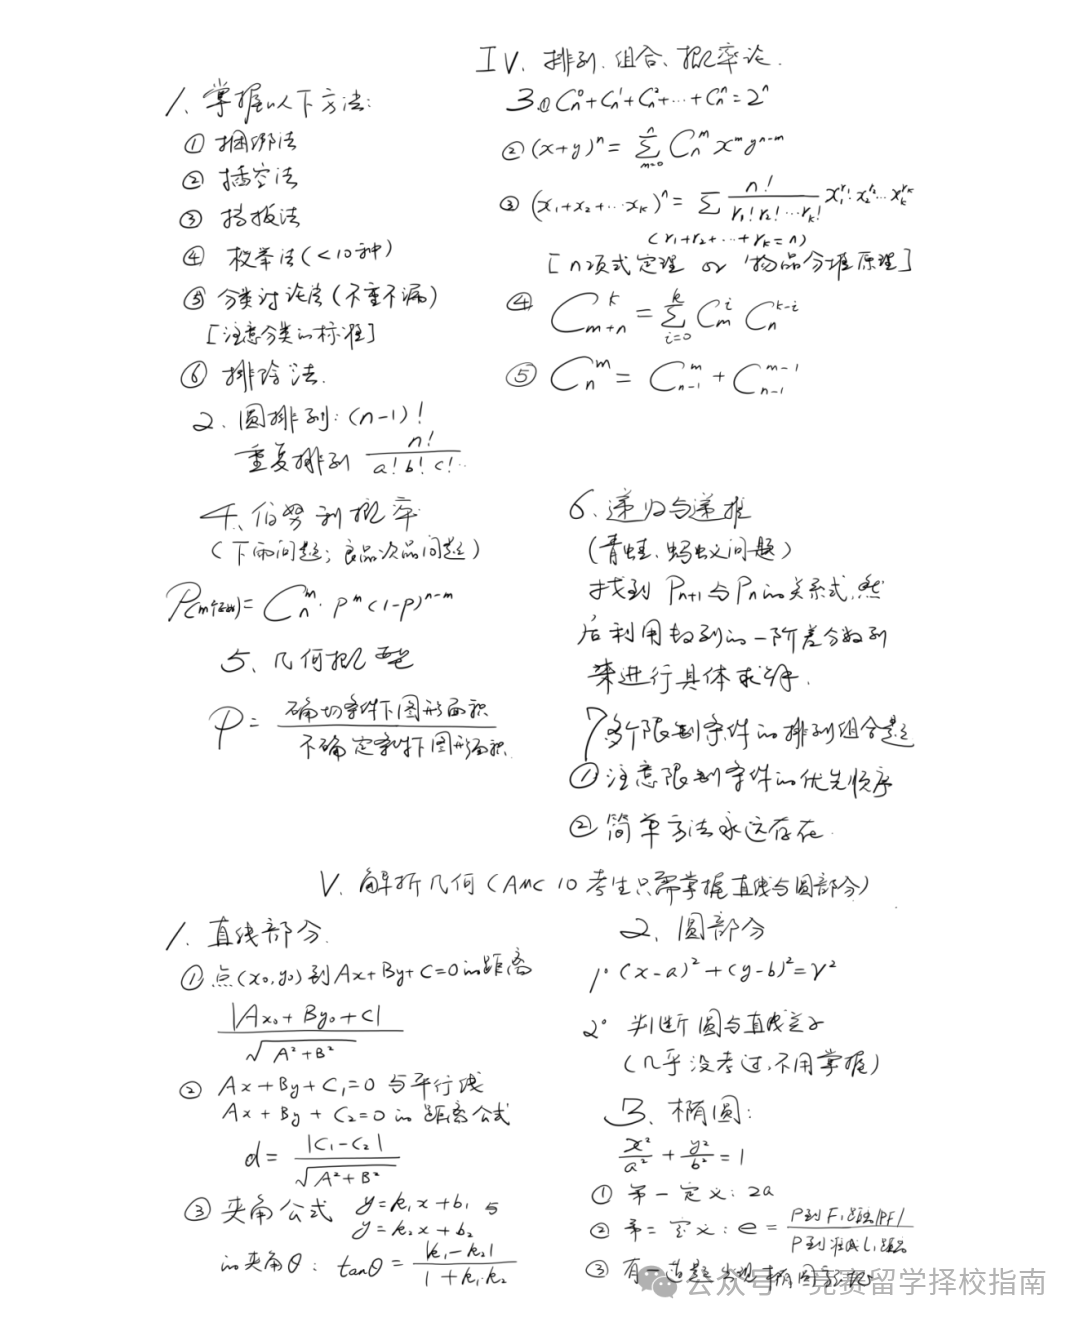 IV. 排列.组合、概率论.
1. 掌握以下方法:
① 捆绑法
② 插空法
③ 挡板法
④ 枚举法(<10种)
⑤ 分类讨论法(不重不漏)
[注意分类的标准]
⑥ 排除法.
2. 圆排列: (n-1)!
重复排列 n!/(a!b!c!…)
3.① Cn^0+Cn^1+Cn^2+…+Cn^n=2^n
② (x+y)^n = Σ_{m=0}^{n} Cn^m x^m y^{n-m}
③ (x1+x2+…xk)^n = Σ n!/(r1!r2!…rk!) x1^{r1}! x2^{r2}…xk^{rk}
(r1+r2+…+rk=n)
[n项式定理 or 物品分堆原理]
④ C_{m+n}^k = Σ_{i=0}^{k} Cm^i Cn^{k-i}
⑤ Cn^m = C_{n-1}^m + C_{n-1}^{m-1}
4、伯努利概率
(下雨问题; 良品次品问题)
= Cn^m · p^m (1-p)^{n-m}
5、几何概型
P = 确切条件下图形面积/不确定条件下图形面积
6、递归与递推
(青蛙、蚂蚁问题)
找到 Pn+1与Pn的关系式,然
后利用数列的一阶差分数列
来进行具体求解.
7 多个限制条件的排列组合题
① 注意限制条件的优先顺序
② 简单方法永远存在.
V. 解析几何 (AMC 10 考生只需掌握直线与圆部分)
1. 直线部分.
① 点(x0,y0)到Ax+By+C=0的距离
|Ax0+By0+C|/√(A²+B²)
② Ax+By+C1=0 与平行线
Ax+By+C2=0的距离公式
d= |C1-C2|/√(A²+B²)
③ 夹角公式 y=k1x+b1 与
y=k2x+b2
的夹角θ: tanθ= |k1-k2|/(1+k1·k2)
2、圆部分
1° (x-a)²+(y-b)²=r²
2° 判断圆与直线关系
(几乎没考过,不用掌握)
3、椭圆:
x²/a² + y²/b² =1
① 第一定义: 2a
② 第二定义: e = P到F1距离|PF|/P到准线L1距离
③ 有一道题
公众号·竞赛留学择校指南